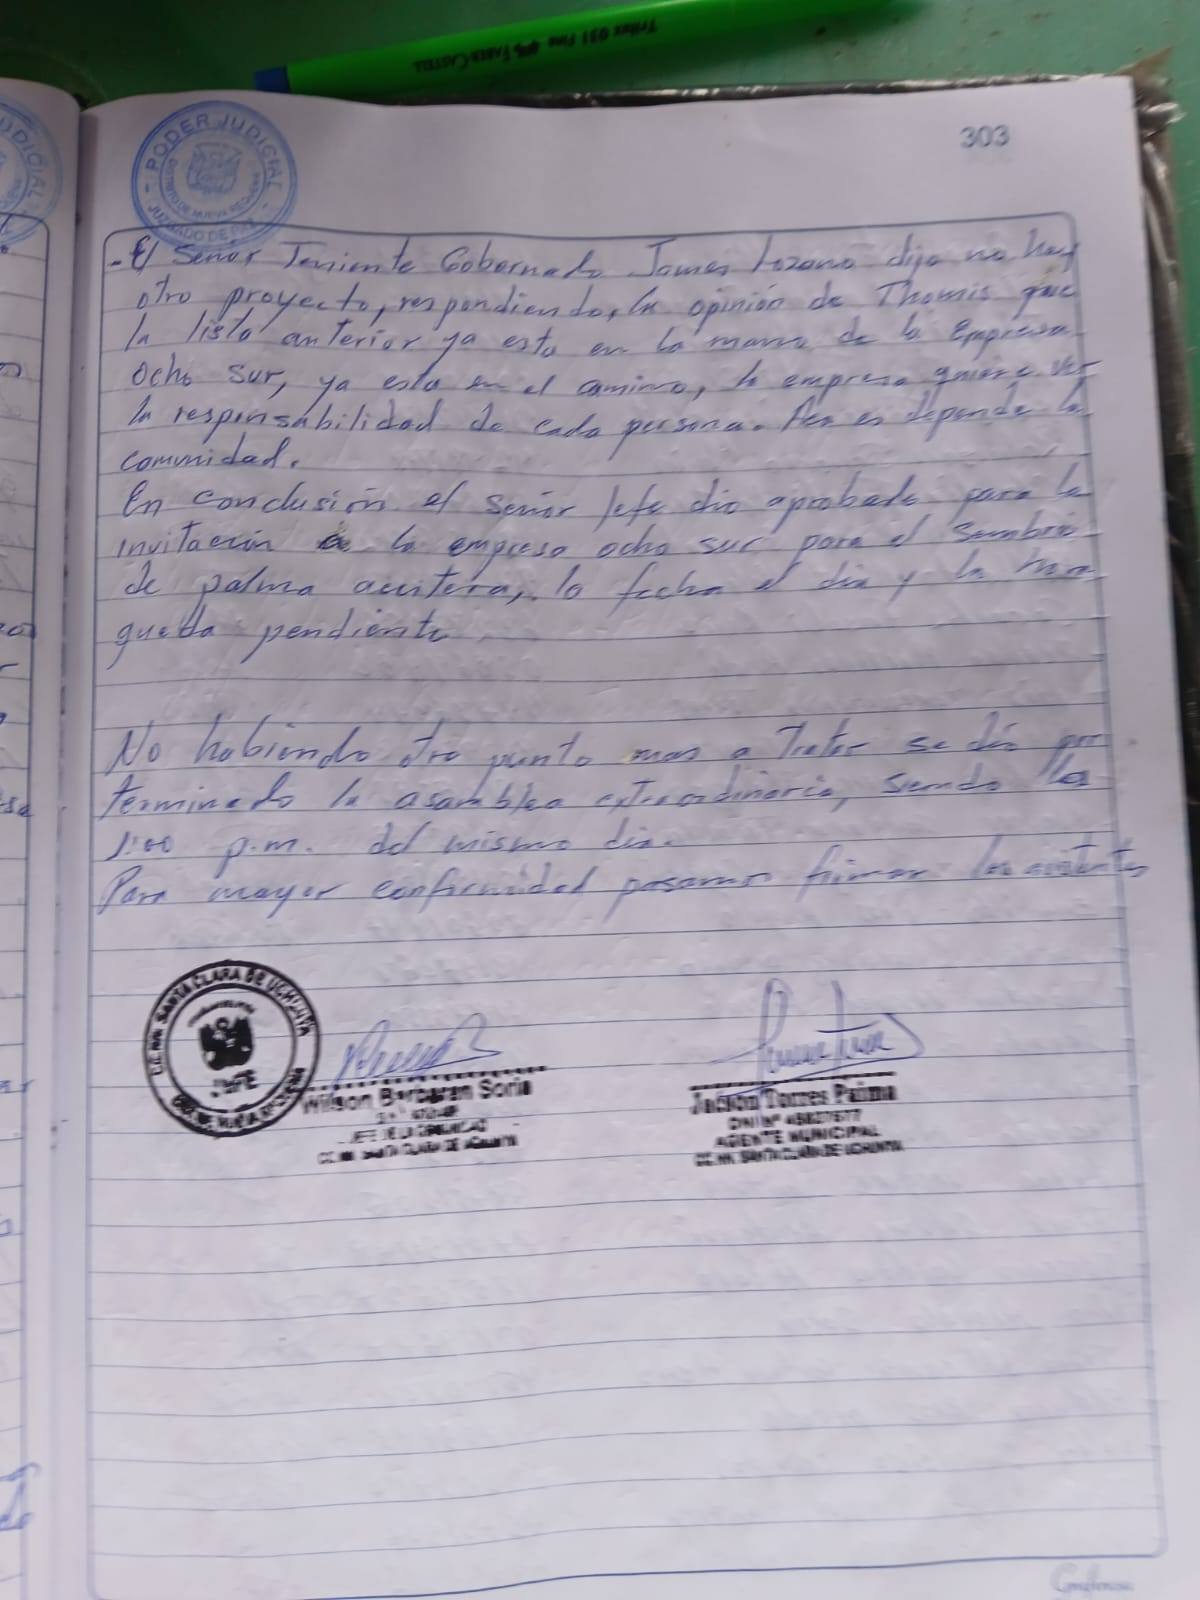 Trilux 031 Fine FABER CASTELL
PODER JUDICIAL
DISTRITO DE NUEVA REQUENA
JUZGADO DE PAZ
303
-El Señor Teniente Gobernado James Lozano dijo no hay
otro proyecto, respondiendo, la opinión de Thomis que
la lista anterior ya esta en la mano de la Empresa
Ocho Sur, ya esta en el camino, la empresa quiere ver
la responsabilidad de cada persona. es depende la
comunidad.
En conclusión el Señor Jefe dio aprobado para la
invitación a la empresa ocho sur para el Sembrio
de palma aceitera, la fecha el dia y la hora
queda pendiente
No habiendo otro punto mas a Tratar se dio por
terminado la asamblea extraordinaria, siendo las
1:00 p.m. del mismo dia.
Para mayor conformidad pasamos firmar los asistentes
CC.NN. SANTA CLARA DE UCHUNYA
JEFE
DIST. DE NUEVA REQUENA
Wilson Barbaran Soria
JEFE DE LA COMUNIDAD
CC.NN. SANTA CLARA DE UCHUNYA
Jacson Torres Paima
DNI N°
AGENTE MUNICIPAL
CC.NN. SANTA CLARA DE UCHUNYA